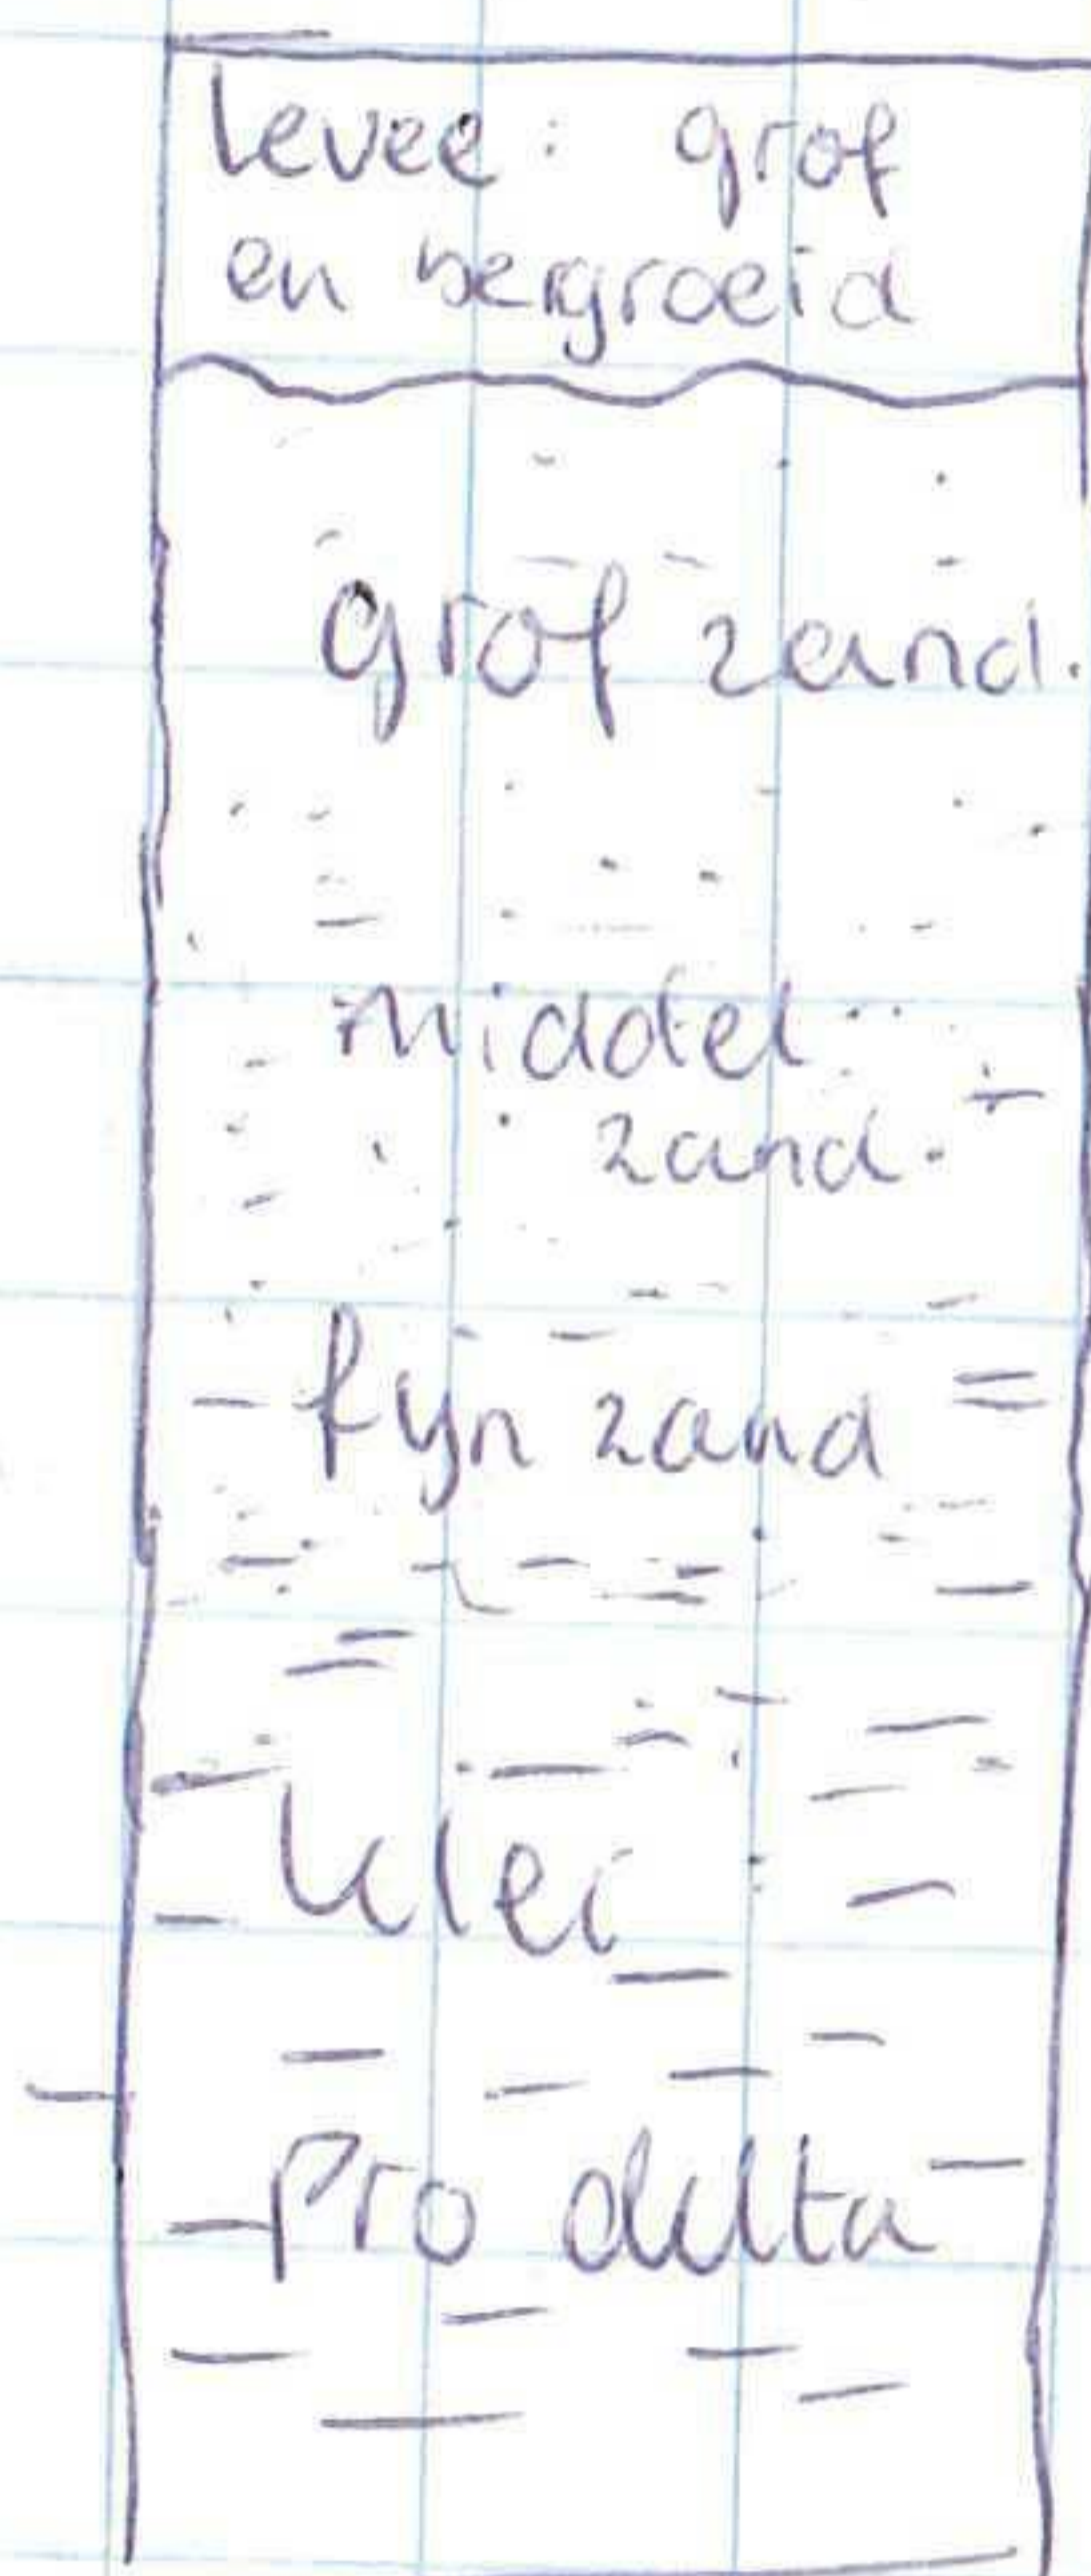 levee: grof
en bergroeid
grof zand.
middel
zand.
fyn zand
klei
Pro delta